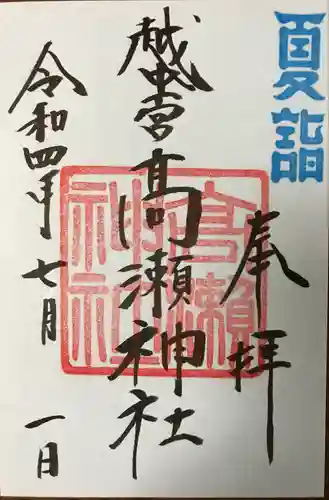 夏詣
奉拝
越中一宮高瀬神社
高瀬神社
令和四年七月一日